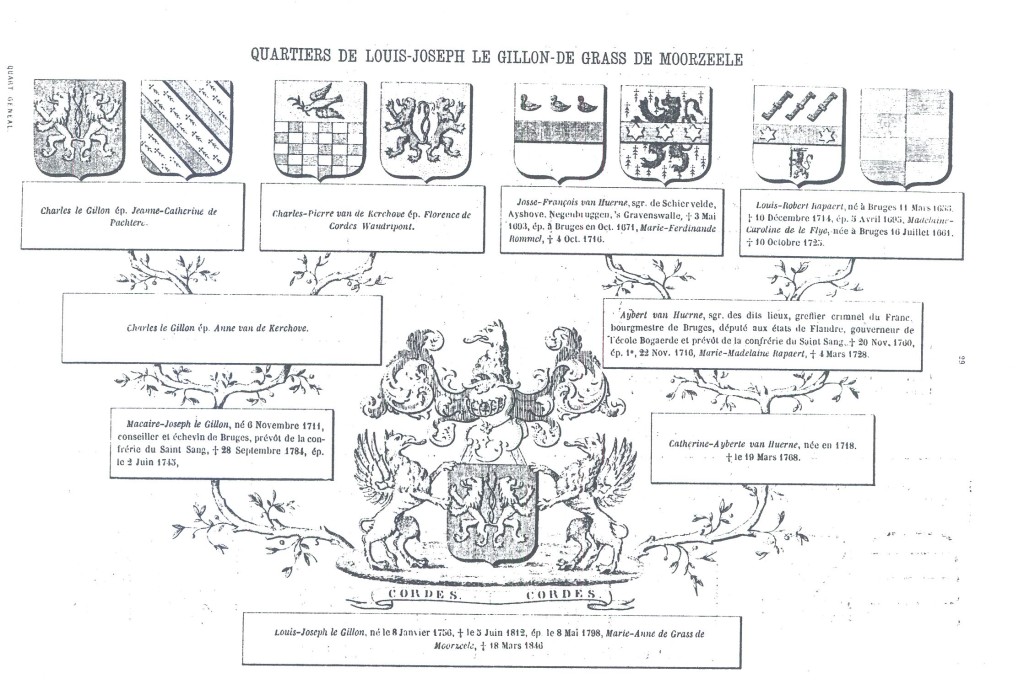 QUARTIERS DE LOUIS-JOSEPH LE GILLON-DE GRASS DE MOORZEELE
QUART GÉNÉAL
Charles le Gillon ép. Jeanne-Catherine de
Pachtere.
Charles-Pierre van de Kerchove ép. Florence de
Cordes Waudripont.
Josse-François van Huerne, sgr. de Schiervelde,
Ayshove, Negenbruggen, 's Gravenswalle, † 3 Mai
1693, ép. à Bruges en Oct. 1671, Marie-Ferdinande
Rommel, † 4 Oct. 1716.
Louis-Robert Rapaert, né à Bruges 11 Mars
† 10 Décembre 1714, ép. 5 Avril 1695, Madelaine-
Caroline de la Flye, née à Bruges 16 Juillet 1661.
† 10 Octobre 1725.
Charles le Gillon ép. Anne van de Kerchove.
Aybert van Huerne, sgr. des dits lieux, greffier criminel du Franc,
bourgmestre de Bruges, député aux états de Flandre, gouverneur de
l'école Bogaerde et prévôt de la confrérie du Saint Sang, † 20 Nov. 1760,
ép. 1°, 22 Nov. 1716, Marie-Madelaine Rapaert, † 4 Mars 1728.
29
Macaire-Joseph le Gillon, né 6 Novembre 1711,
conseiller et échevin de Bruges, prévôt de la con-
frérie du Saint Sang, † 28 Septembre 1784, ép.
le 2 Juin 1745,
Catherine-Ayberte van Huerne, née en 1718.
† le 19 Mars 1768.
CORDES. CORDES
Louis-Joseph le Gillon, né le 8 Janvier 1756, † le 5 Juin 1812, ép le 8 Mai 1798, Marie-Anne de Grass de
Moorzeele, † 18 Mars 1846